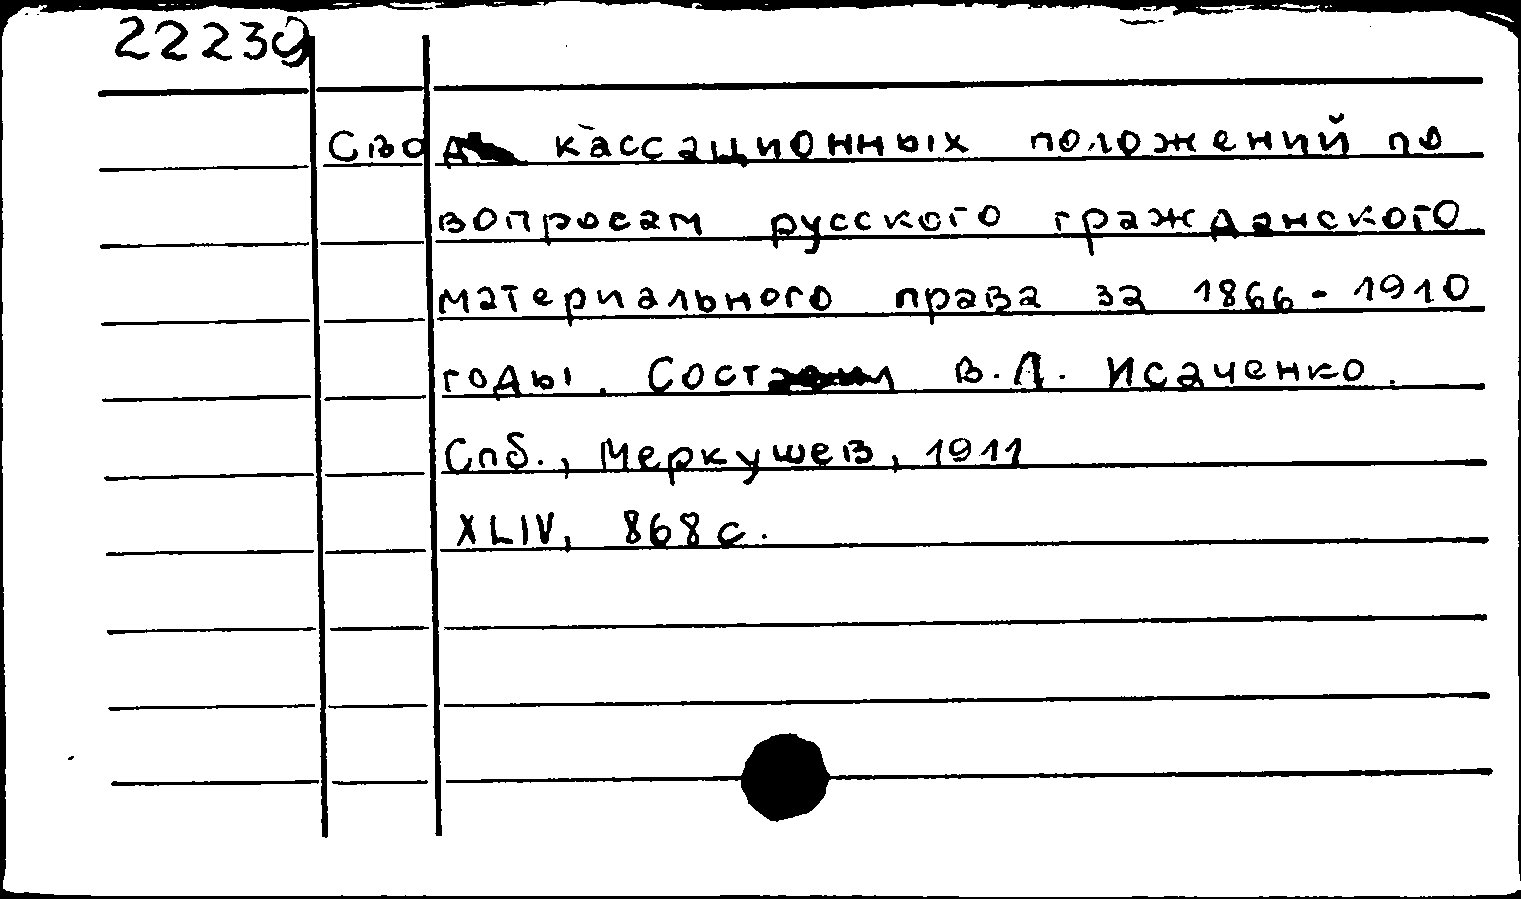 22239
Свод кассационных положений по
вопросам русского гражданского
материального права за 1866-1910
годы. Составил В.Л. Исаченко.
Спб., Меркушев, 1911
XLIV, 868 с.